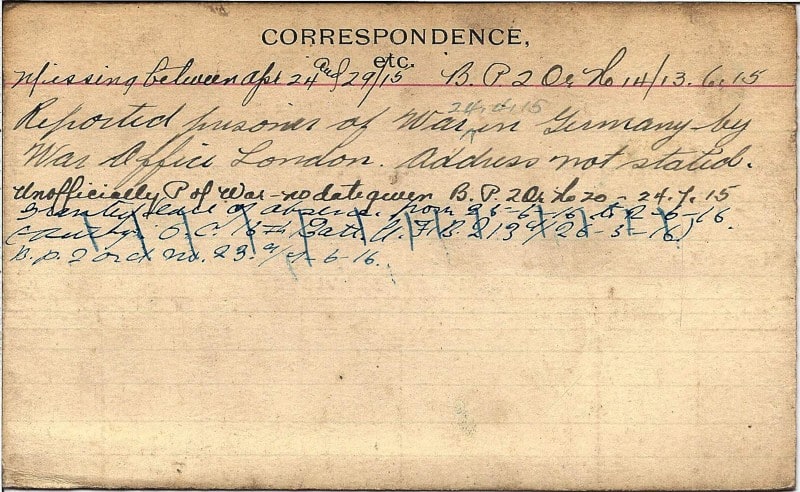 CORRESPONDENCE,
etc.
Missing between Apr 24 and 29/15 B. P. 2 Or. No 14/13.6.15
24.4.15
Reported prisoner of War in Germany by
War Office London. Address not stated.
Unofficially P of War - no date given B. P. 2 Or No 20 - 24.7.15
leave of absence from 25-5-16 to 2-6-16.
O C 16th Batt. A. F. B. 213 26-5-16)
B. P. 2 ord no. 23. 1-6-16.